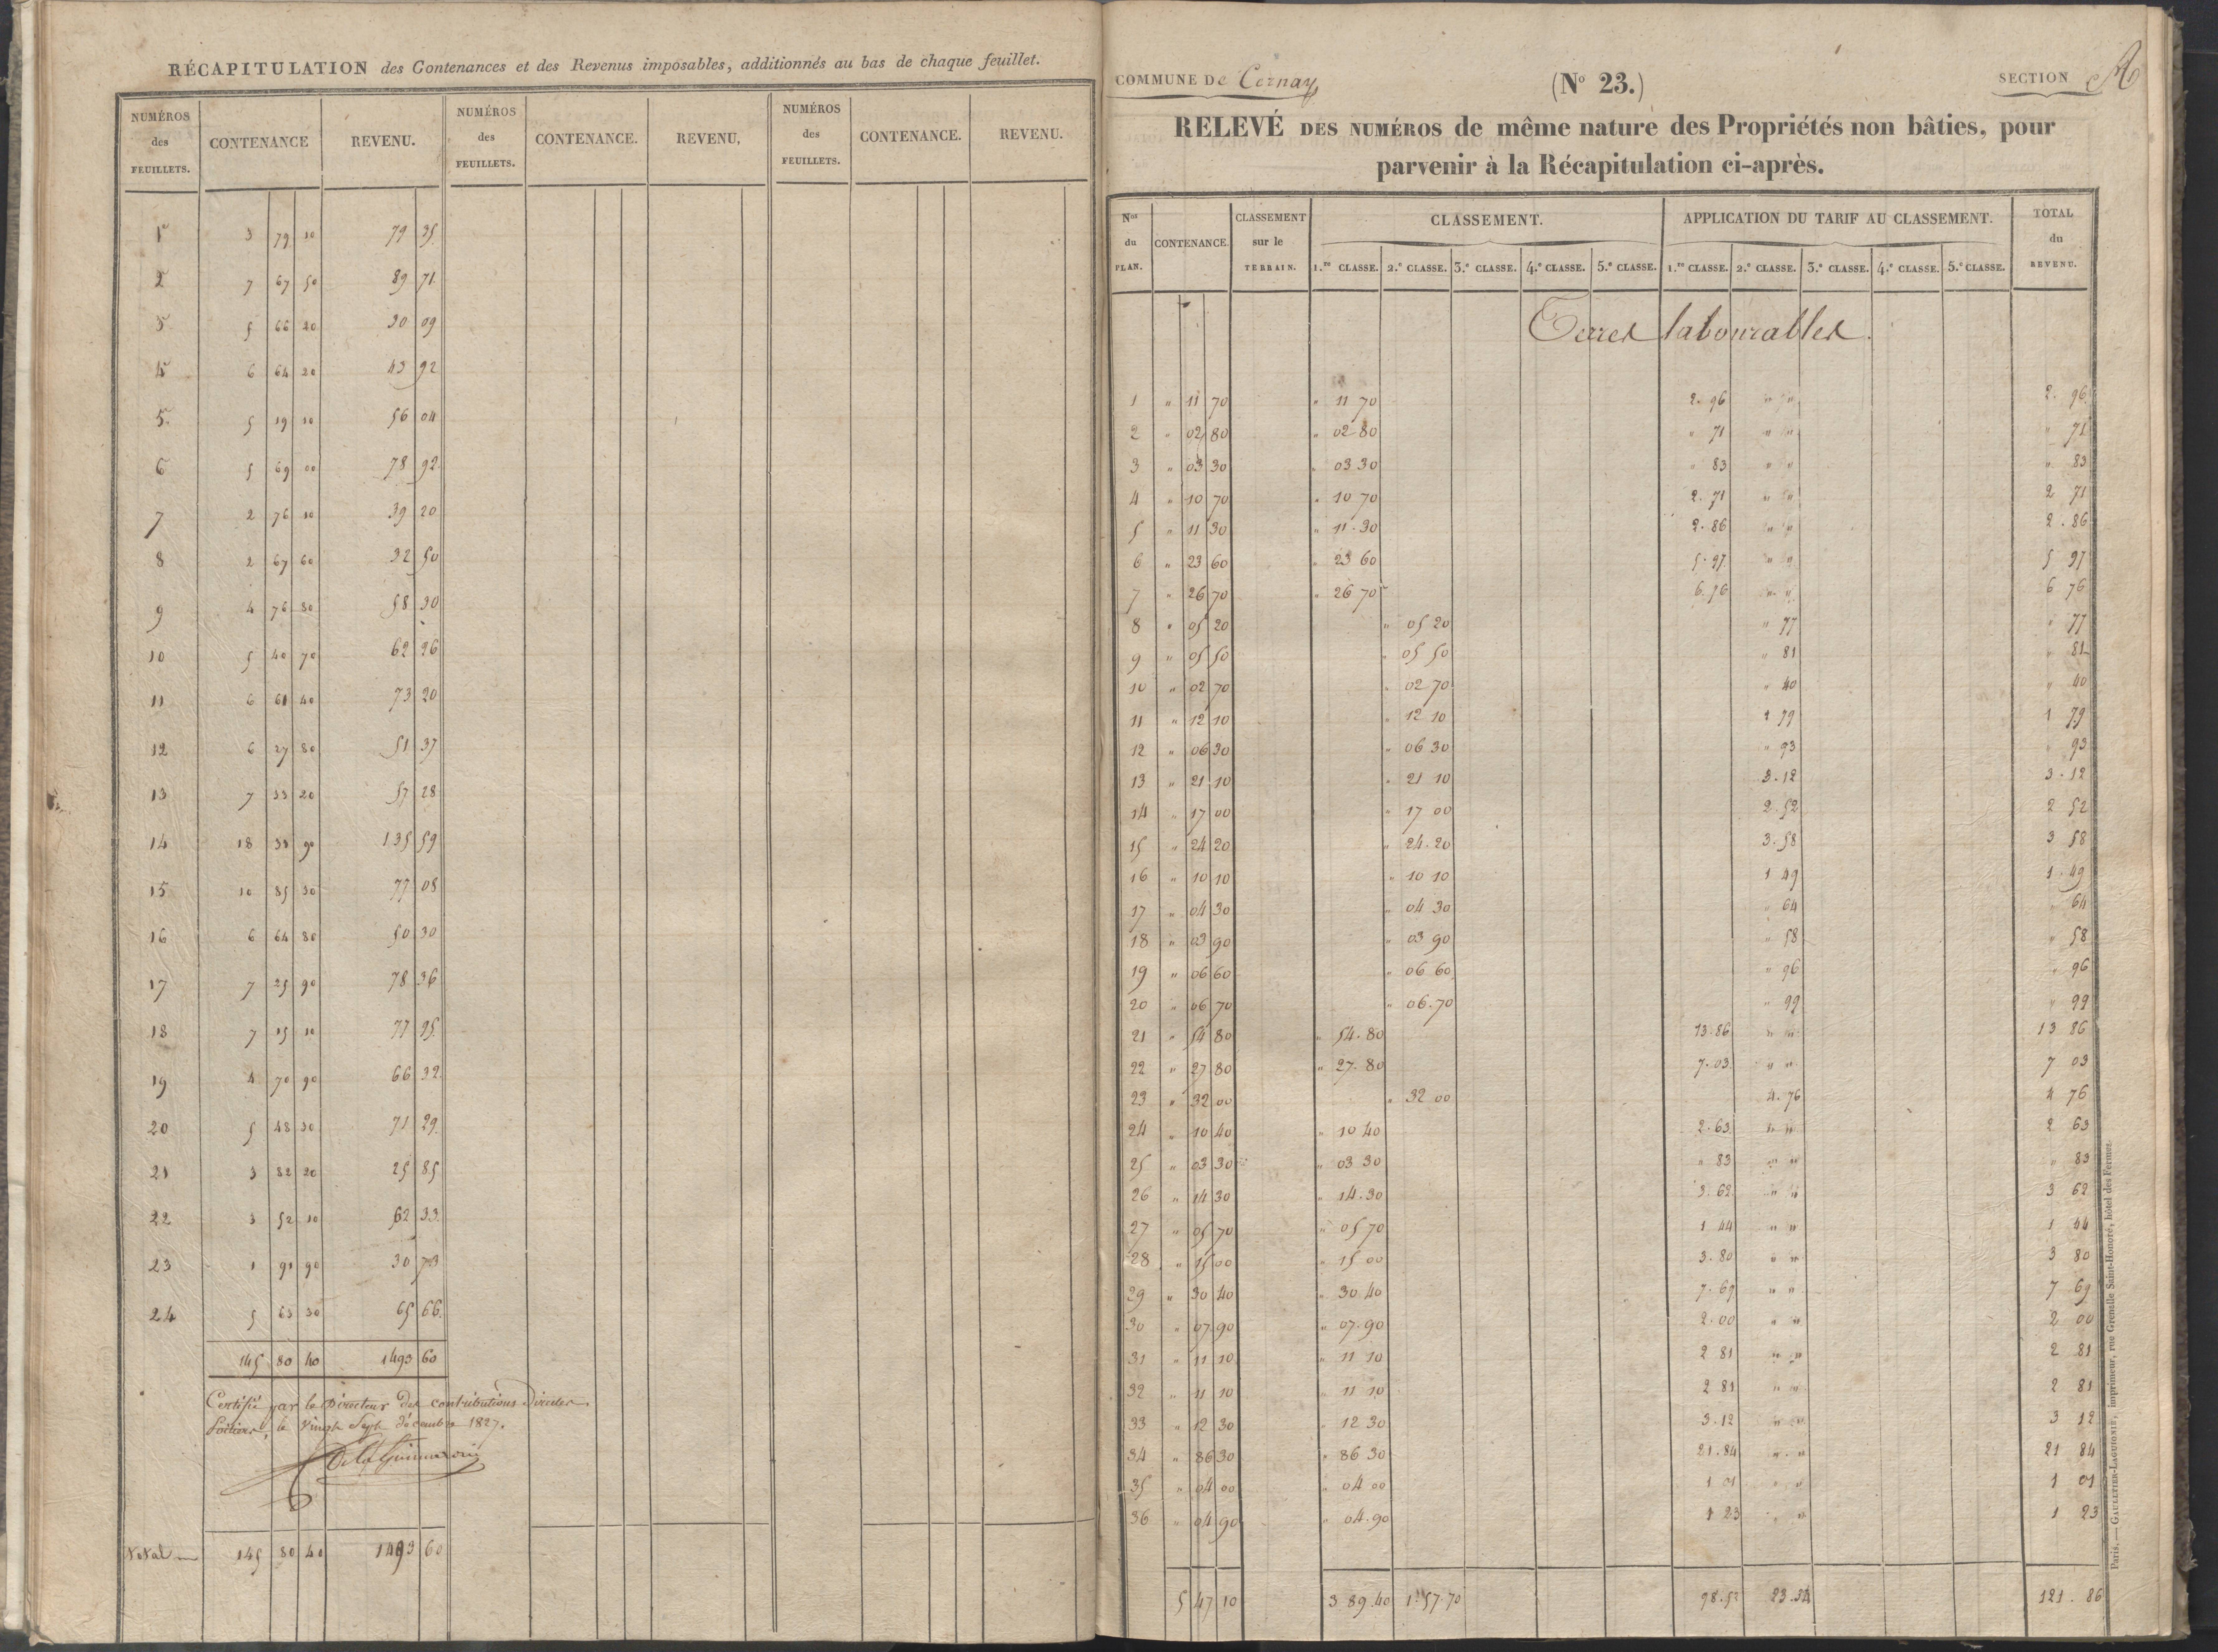 RÉCAPITULATION des Contenances et des Revenus imposables, additionnés au bas de chaque feuillet.
NUMÉROS des FEUILLETS. CONTENANCE REVENU. NUMÉROS des FEUILLETS. CONTENANCE. REVENU, NUMÉROS des FEUILLETS. CONTENANCE. REVENU.
1 3 79 10 79 35
2 7 67 50 89 71
3 5 66 20 30 09
4 6 64 20 43 92
5 5 19 10 56 04
6 5 69 00 78 92
7 2 76 10 39 20
8 2 67 60 32 50
9 4 76 80 58 30
10 5 40 70 62 26
11 6 61 40 73 20
12 6 27 80 51 37
13 7 33 20 57 28
14 18 33 90 135 59
15 10 85 30 77 08
16 6 64 80 50 30
17 7 25 90 78 36
18 7 15 10 77 95
19 4 70 90 66 32
20 5 48 30 71 29
21 3 82 20 25 85
22 3 52 10 62 33
23 1 91 90 30 73
24 5 63 30 65 66
145 80 40 1493 60
Certifié par le Directeur des contributions Directes.
Poitiers, le vingt Sept décembre 1827.
Total 145 80 40 1493 60
COMMUNE De Cernay
(No 23.)
SECTION A
RELEVÉ DES NUMÉROS de même nature des Propriétés non bâties, pour
parvenir à la Récapitulation ci-après.
Nos du PLAN. CONTENANCE. CLASSEMENT sur le TERRAIN. CLASSEMENT. APPLICATION DU TARIF AU CLASSEMENT. TOTAL du REVENU.
1.re CLASSE. 2.e CLASSE. 3.e CLASSE. 4.e CLASSE. 5.e CLASSE. 1.re CLASSE. 2.e CLASSE. 3.e CLASSE. 4.e CLASSE. 5.e CLASSE.
Terres labourables.
1 " 11 70 " 11 70 2. 96 " " 2. 96
2 " 02 80 " 02 80 " 71 " " " 71
3 " 03 30 " 03 30 " 83 " " " 83
4 " 10 70 " 10 70 2. 71 " " 2 71
5 " 11 30 " 11. 30 2. 86 " " 2. 86
6 " 23 60 " 23 60 5. 97 " " 5 97
7 " 26 70 " 26 70 6. 76 " " 6 76
8 " 05 20 " 05 20 " 77 " 77
9 " 05 50 " 05 50 " 81 " 81
10 " 02 70 " 02 70 " 40 " 40
11 " 12 10 " 12 10 1 79 1 79
12 " 06 30 " 06 30 " 93 " 93
13 " 21 10 " 21 10 3. 12 3. 12
14 " 17 00 " 17 00 2. 52 2 52
15 " 24 20 " 24. 20 3. 58 3 58
16 " 10 10 " 10 10 1 49 1. 49
17 " 04 30 " 04 30 " 64 " 64
18 " 03 90 " 03 90 " 58 " 58
19 " 06 60 " 06 60 " 96 " 96
20 " 06 70 " 06. 70 " 99 " 99
21 " 54 80 " 54. 80 13. 86 " " 13 86
22 " 27 80 " 27. 80 7. 03 " " 7 03
23 " 32 00 " 32 00 4. 76 4 76
24 " 10 40 " 10 40 2. 63 " " 2 63
25 " 03 30 " 03 30 " 83 " " " 83
26 " 14 30 " 14. 30 3. 62 " " 3 62
27 " 05 70 " 05 70 1 44 " " 1 44
28 " 15 00 " 15 00 3. 80 " " 3 80
29 " 30 40 " 30 40 7. 69 " " 7 69
30 " 07 90 " 07. 90 2. 00 " " 2 00
31 " 11 10 " 11 10 2 81 " " 2 81
32 " 11 10 " 11 10 2 81 " " 2 81
33 " 12 30 " 12 30 3. 12 " " 3 12
34 " 86 30 " 86 30 21. 84 " " 21 84
35 " 04 00 " 04 00 1 01 " " 1 01
36 " 04 90 " 04. 90 1 23 " " 1 23
5 47 10 3 89. 40 1. 57. 70 98. 52 23. 34 121. 86
Paris.—GAULTIER-LAGUIONIE, imprimeur, rue Grenelle Saint-Honoré, hôtel des Fermes.